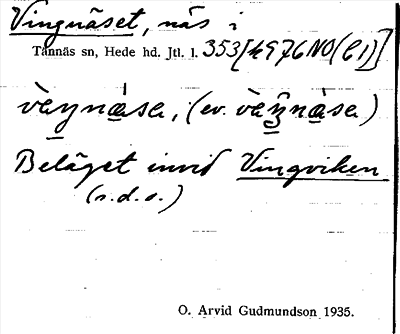 Vingnäset, näs i
Tännäs sn, Hede hd. Jtl. l. 353[4976NO(C1)]
(ev.
Beläget invid Vingviken
(s.d.o.)
O. Arvid Gudmundson 1935.